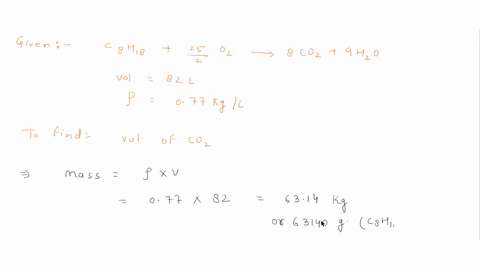 Given:- C8H18 + 25/2 O2 → 8CO2 + 9H2O
vol. = 82 L.
ρ = 0.77 Kg/L
To find:- vol. of CO2
⇒ mass = ρ x V
= 0.77 x 82 = 63.14 Kg
or 63140 g. (C8H1